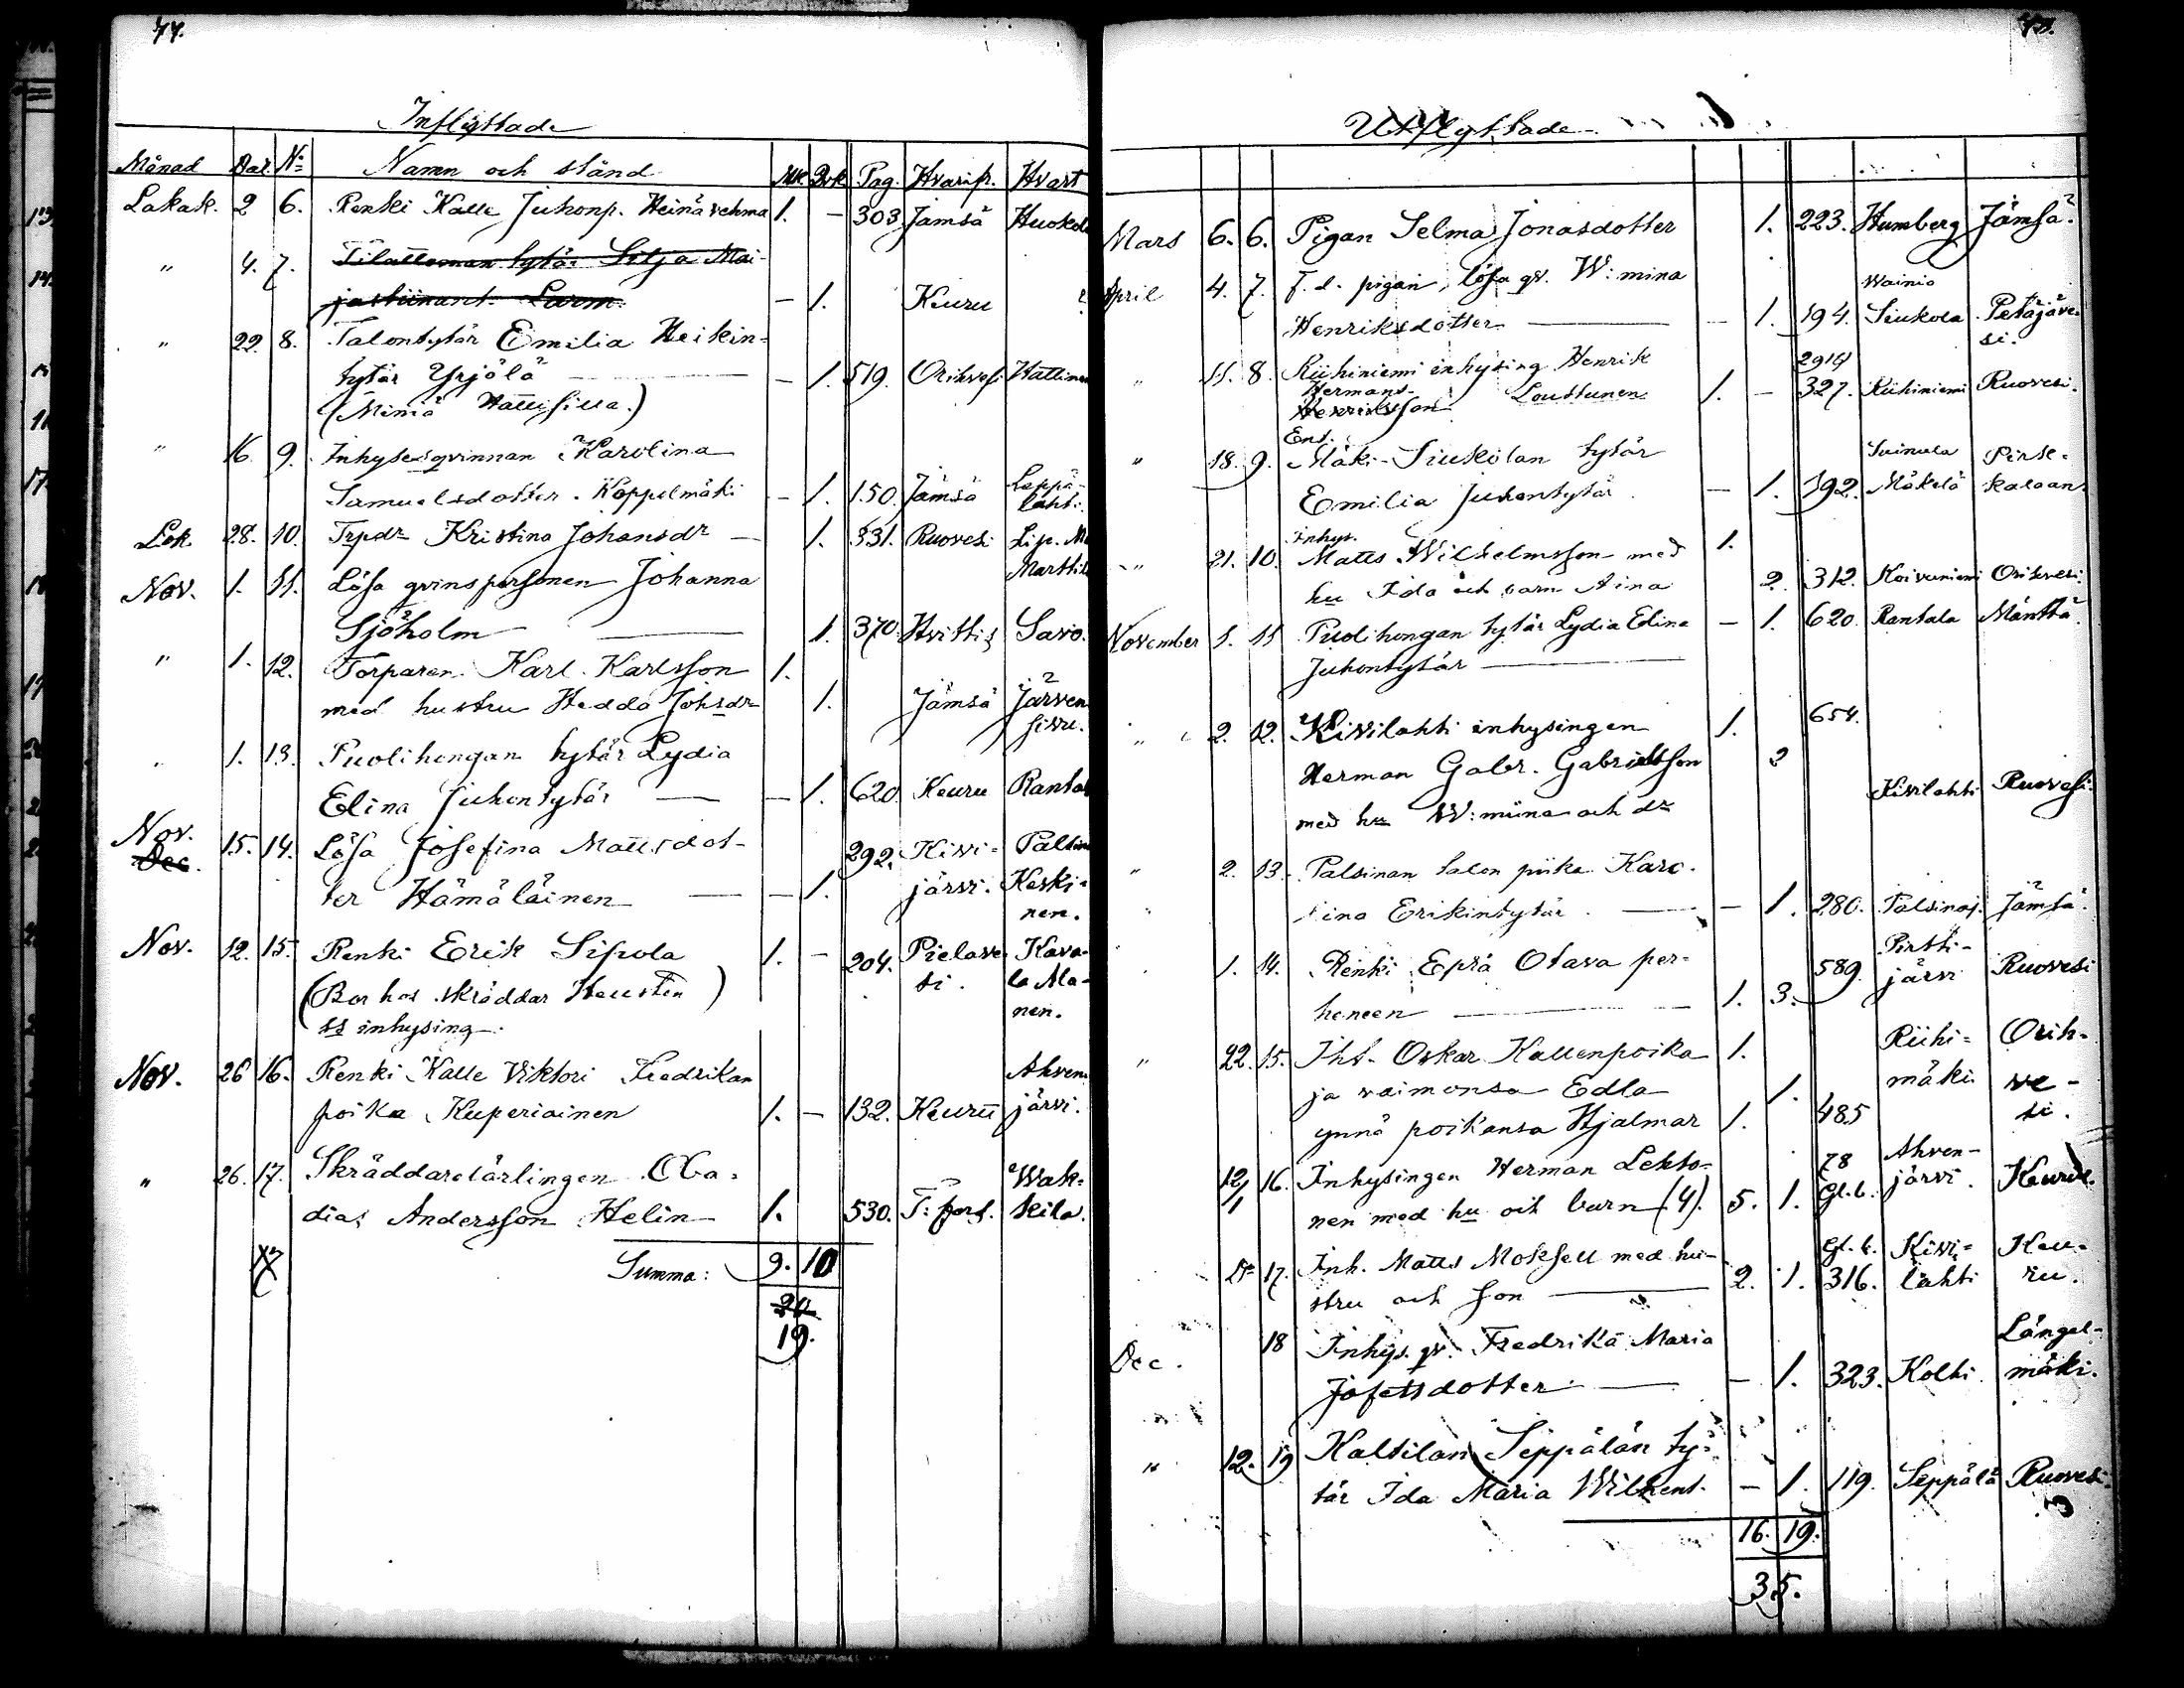 44.
Inflyttade
Månad Dat. No Namn och stånd Mk. Qvk. Pag. Hvarifr. Hvart
Lokak. 2 6. Renki Kalle Juhonp. Heinävehma 1. - 303 Jämsä Huokola
" 4. 7. Tilattoman tytär Silja Mai-
jastiinant. Larm. - 1. Keuru
" 22. 8. Talontytär Emilia Heikin-
tytär Yrjölä - 1. 519. Orihvesi
(Miniä Hallisilla.)
" 16. 9. Inhysesqvinnan Karolina
Samuelsdotter Koppelmäki - 1. 150. Jämsä Leppä-
lahti.
Lok. 28. 10. Trpdr Kristina Johansdr - 1. 331. Ruovesi Lip. M
Marttila
Nov. 1. 11. Lösa qvinspersonen Johanna
Sjöholm 1. 370. Hvittis Savo.
" 1. 12. Torparen Karl Karlsson 1.
med hustru Hedda Johsdr 1. Jämsä Järven
sivu.
" 1. 13. Puolihongan tytär Lydia
Elina Juhontytär - 1. 620. Keuru Rantal
Nov.
Dec. 15. 14. Lösa Josefina Mattsdot-
ter Hämäläinen - 1. 292. Kivi-
järvi. Keski-
nen.
Nov. 12. 15. Renki Erik Sipola 1. - 204. Pielave-
si. Kava-
la Ala-
nen.
(Bor hos skräddar Heusten)
ss inhysing.
Nov. 26 16. Renki Kalle Viktori Fredrikan
poika Kuperiainen 1. - 132. Keuru Ahven-
järvi.
" 26. 17. Skräddarelärlingen Oba-
dias Andersson Helin 1. 530. T:fors. Wak-
kila.
Summa: 9. 10
19.
Utflyttade
Mars 6. 6. Pigan Selma Jonasdotter 1. 223. Humberg Jämsä.
April 4. 7. F.d. pigan, lösa qv. W:mina
Henriksdotter - 1. 194. Wainio
Siukola Petäjäve-
si.
" 11. 8. Riihiniemi inhysing Henrik
Hermans-
Henriksson Loustunen 1. - 327. Riihiniemi Ruovesi.
Ent.
" 18. 9. Mäki-Siukolan tytär
Emilia Juhontytär - 1. 192. Suinula
Mäkelä Pirk-
kalaan.
Inhys.
" 21. 10. Matts Wilhelmsson med 1.
hu Ida och barn Aina 2. 312. Koivuniemi Orihvesi.
November 1. 11 Puolihongan tytär Lydia Elina - 1. 620. Rantala Mänttä.
Juhontytär
" 2. 12. Kivilahti inhysingen 1. 654.
Herman Gabr. Gabrielsson 2
med hu W:miina och dr Kivilahti Ruovesi.
" 2. 13. Palsinan talon piika Karo-
liina Erikintytär - 1. 280. Palsinaj. Jämsä.
1. 14. Renki Eprá Otava per-
heneen 1. 3. 589. Pirtti-
järvi Ruovesi
" 22. 15. Iht. Oskar Kallenpoika 1.
ja vaimonsa Edla 1.
ynnä poikansa Hjalmar 1. 485 Riihi-
mäki. Orih-
ve-
si.
12/1 16. Inhysingen Herman Lehto-
nen med hu och barn (4). 5. 1. 78
Gl.b. Ahven-
järvi. Keuru.
Dr 17. Inh. Matts Moksell med hu-
stru och son 2. 1. Gl.b.
316. Kivi-
lahti Keu-
ru.
Dec. 18 Inhys. qv. Fredrika Maria
Jofetsdotter - 1. 323. Kolhi. Längel-
mäki.
" 12. 19 Kaltilan Seppälän ty-
tär Ida Maria Wilhent. - 1. 119. Seppälä Ruovesi.
16. 19.
35.